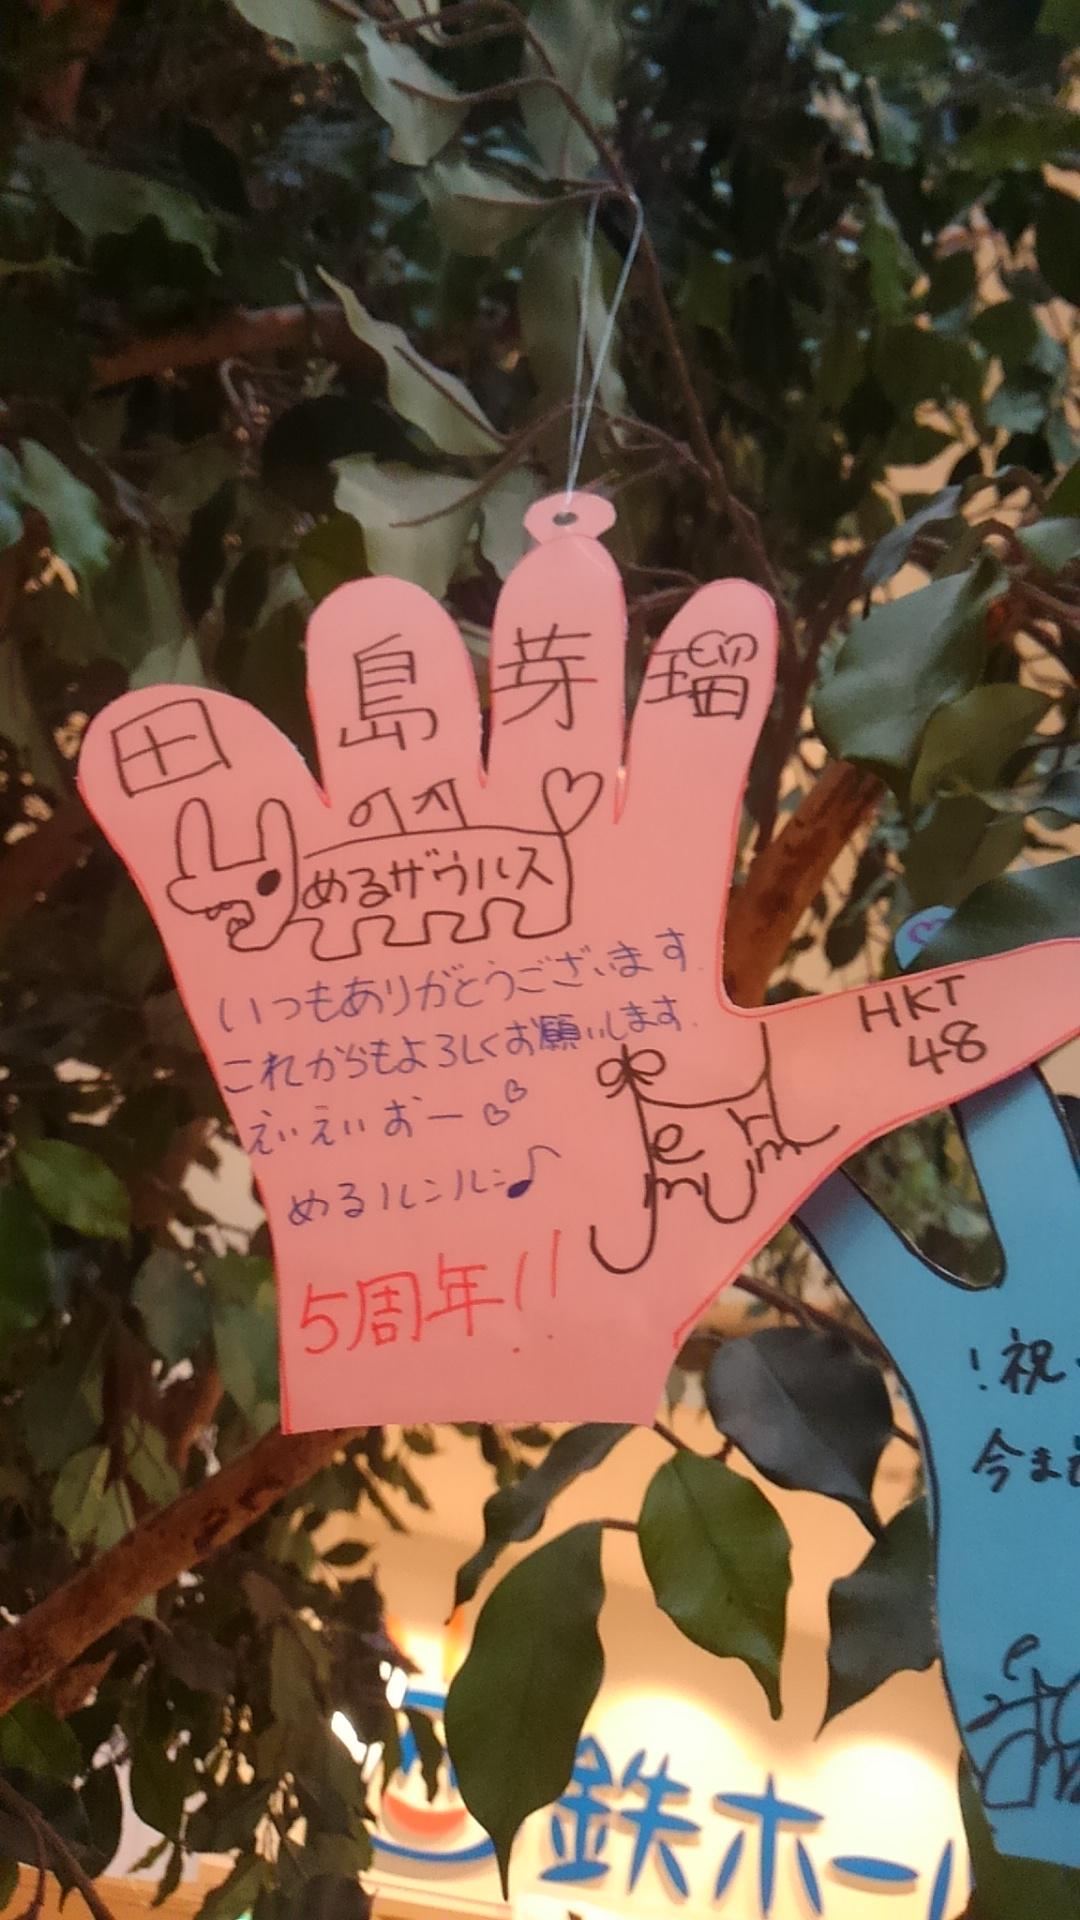 田島芽瑠
めるザウルス
いつもありがとうございます
これからもよろしくお願いします
えいえいおー
めるルンルン♪
meru
5周年!!
HKT
48
!祝
今ま
鉄ホール